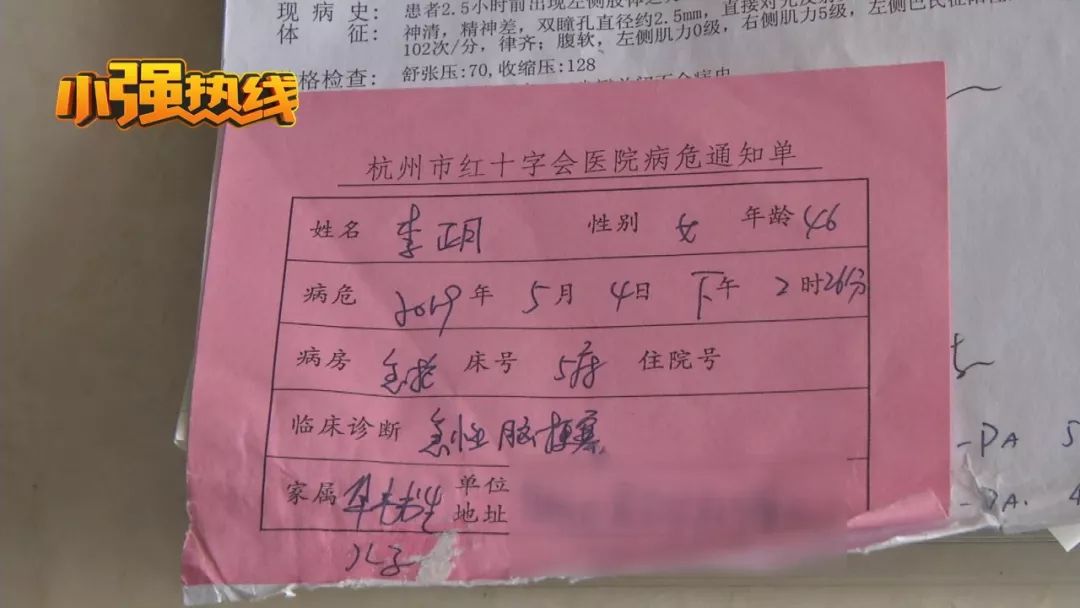 现病史：患者2.5小时前出现左侧肢体
体征：神清，精神差，双瞳孔直径约2.5mm，直接对光反射
102次/分，律齐；腹软，左侧肌力0级，右侧肌力5级，左侧巴氏征阳性
格检查：舒张压:70,收缩压:128
小强热线
杭州市红十字会医院病危通知单
姓名 李正月 性别 女 年龄 46
病危 2019年 5月 4日 下午 2时26分
病房 急抢 床号 5床 住院号
临床诊断 急性脑梗塞
家属 单位
地址
儿子
-DA 5
-DA. 4